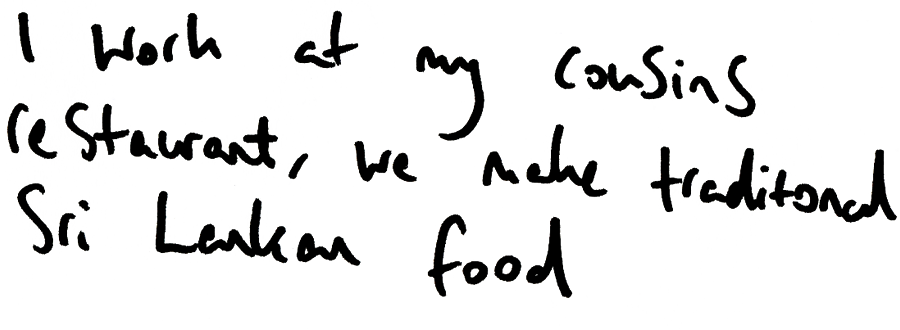 I work at my cousins
restaurant, we make traditonal
Sri Lankan food